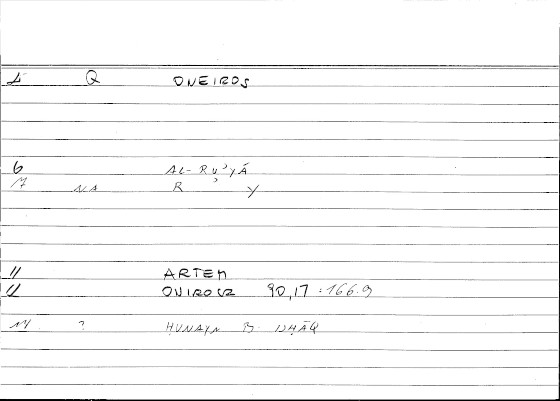 Q ONEIROS
6 AL-RU'YĀ
NA R ' Y
11 ARTEM
11 ONIROCR 90,17 : 166.9
? HUNAYN B. ISḤĀQ